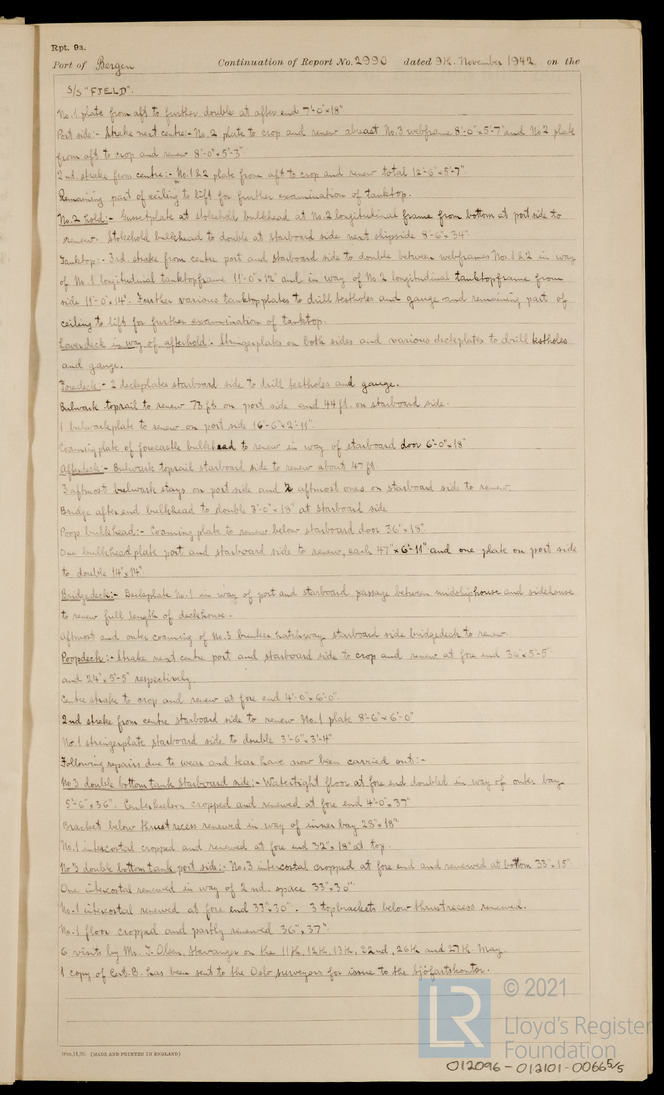 Rpt. 9a.
Port of Bergen Continuation of Report No. 2990 dated 9th. November 1942. on the
S/S "FJELD".
No.1 plate from aft to further double at after end 7'-0"x18"
Port side:- Strake next centre:- No.2 plate to crop and renew abreast No.3 webframe 8'-0"x5'-7" and No.2 plate
from aft to crop and renew 8'-0"x5'-3"
2nd. strake from centre:- No.1&2 plate from aft to crop and renew total 12'-6"x5'-7".
Remaining part of ceiling to lift for further examination of tanktop.
No.2 hold:- Gussetplate at stokehold bulkhead at No.2 longitudinal frame from bottom at port side to
renew. Stokehold bulkhead to double at starboard side next shipside 8'-6"x34"
Tanktop:- 3rd. strake from centre port and starboard side to double between webframes No.1&2 in way
of No.1 longitudinal tanktopframe 11'-0"x12" and in way of No.2 longitudinal tanktopframe from
side 11'-0"x14". Further various tanktopplates to drill testholes and gauge and remaining part of
ceiling to lift for further examination of tanktop.
in way of afterhold:- Stringerplates on both sides and various deckplates to drill testholes
and gauge.
Foredeck:- 2 deckplates starboard side to drill testholes and gauge.
Bulwark toprail to renew 73 ft on port side and 44 ft. on starboard side.
1 bulwarkplate to renew on port side 16'-6"x2'-11"
Coaming plate of forecastle bulkhead to renew in way of starboard door 6'-0"x18"
Afterdeck:- Bulwark toprail starboard side to renew about 47 ft.
3 aftmost bulwark stays on port side and 2 aftmost ones on starboard side to renew.
Bridge after end bulkhead to double 3'-0"x18" at starboard side
Poop bulkhead:- Coaming plate to renew below starboard door 36"x18"
One bulkheadplate port and starboard side to renew, each 47"x6'-11" and one plate on port side
to double 14"x14"
Bridgedeck:- Deckplate No.1 in way of port and starboard passage between midshiphouse and sidehouse
to renew full length of deckhouse.
Aftmost and outer coaming of No.3 bunker hatchway starboard side bridgedeck to renew
Poopdeck:- Strake next centre port and starboard side to crop and renew at fore end 36"x5'-5"
and 24"x5'-5" respectively.
Centre strake to crop and renew at fore end 4'-0"x6'-0"
2nd strake from centre starboard side to renew No.1 plate 8'-6"x6'-0"
No.1 stringerplate starboard side to double 3'-6"x3'-4"
Following repairs due to wear and tear have now been carried out:-
No.3 double bottom tank starboard side:- Watertight floor at fore end doubled in way of outer bay
5'-6"x36". Centrekeelson cropped and renewed at fore end 4'-0"x37"
Bracket below thrust recess renewed in way of inner bay 28"x18"
No.1 intercostal cropped and renewed at fore end 32"x18" at top.
No 3 double bottom tank port side:- No.3 intercostal cropped at fore end and renewed at bottom 33"x15"
One intercostal renewed in way of 2nd. space 33"x30"
No.1 intercostal renewed at fore end 33"x30". 3 topbrackets below thrustrecess renewed.
No.1 floor cropped and partly renewed 36"x37"
6 visits by Mr. T. Olsen, Stavanger on the 11th, 12th, 13th, 22nd, 26th and 27th May.
1 copy of Cert. B. has been sent to the Oslo surveyors for issue to the Sjöfartskontor.
(MADE AND PRINTED IN ENGLAND)
LR
© 2021
Lloyd's Register
Foundation
012096-012101-0066 5/5